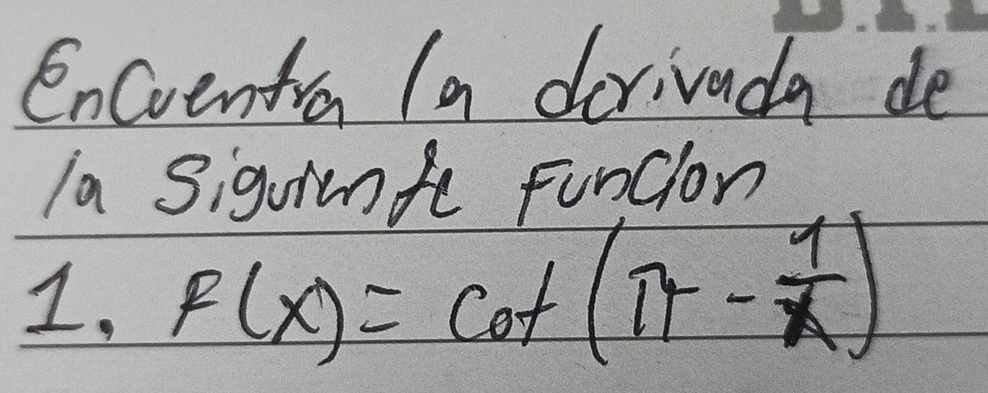 Encuentra la derivada de
la siguiente Funcion
1. F(x) = Cot (π - 1/x)